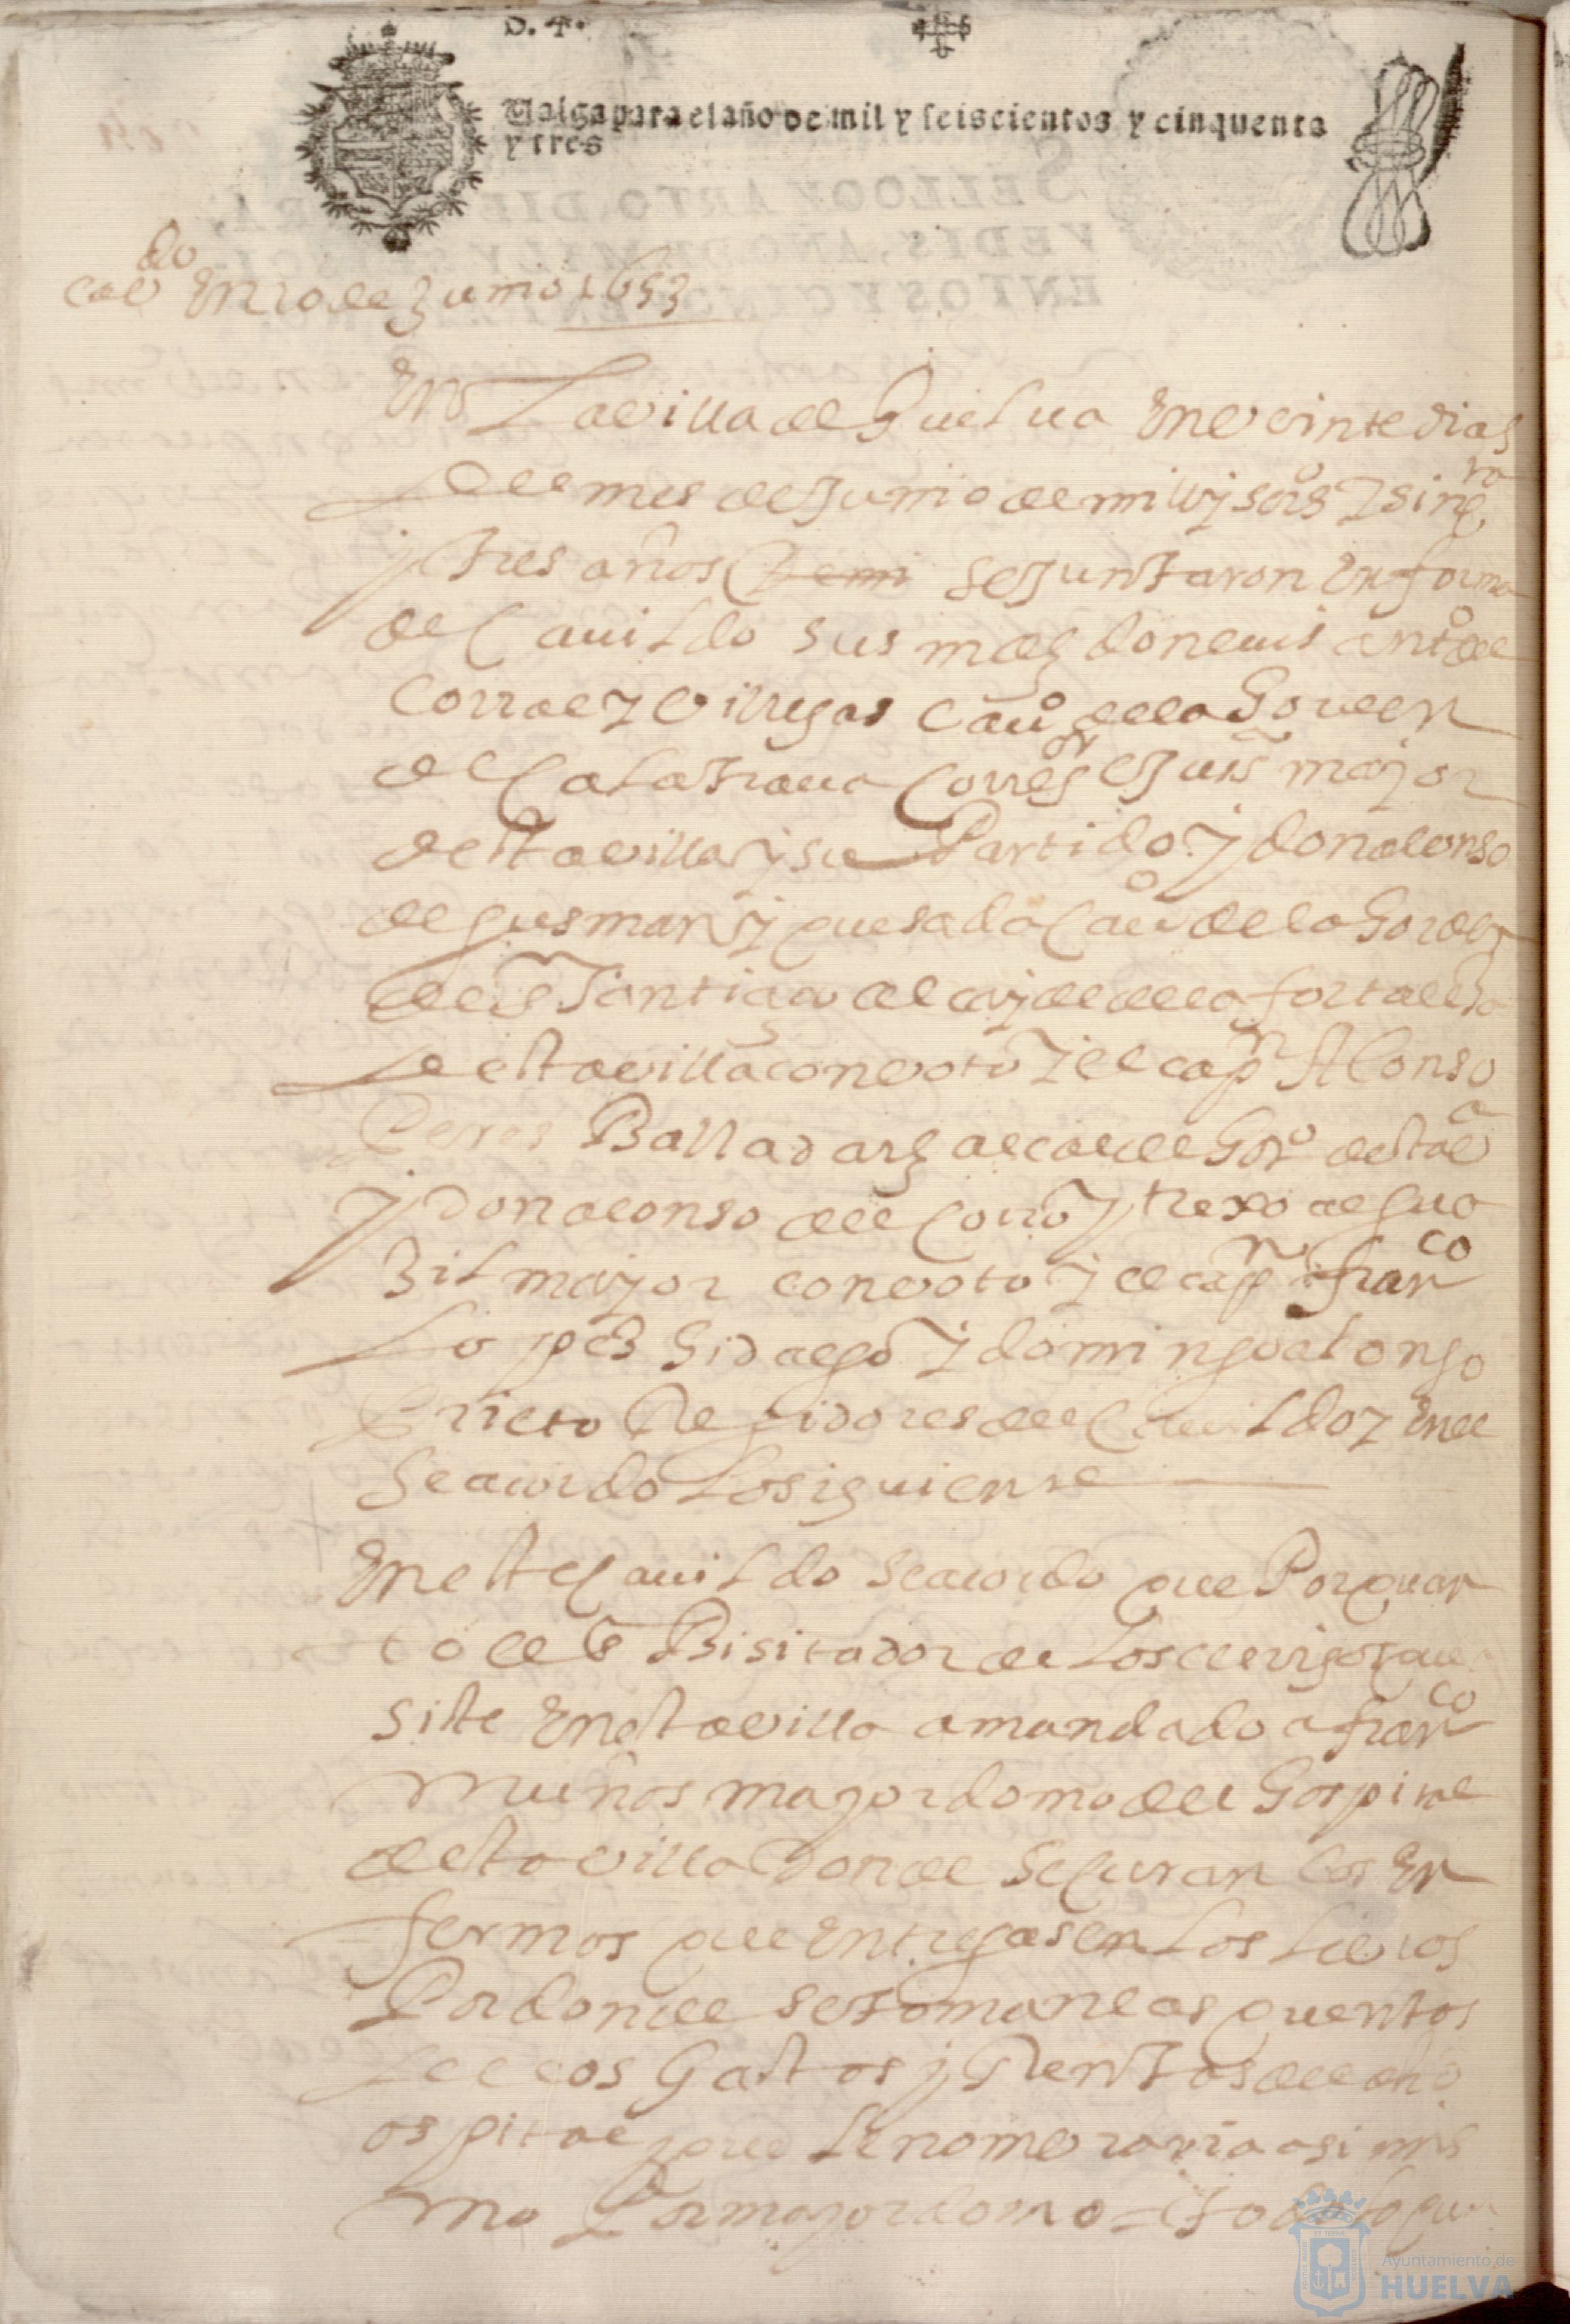 Valga para el año de mil y seiscientos y cinquenta
y tres
cavdo En 20 de Junio 1653
En La villa de Guelua En veinte dias
del mes de Junio de mill y sos y sinqta
y tres años se Juntaron En forma
de Cauildo sus mds don luis anto de
Corral y Villegas Cauo de la Horden
de Calatraua Corregor y Jues mayor
desta villa y su Partido y don alonso
de gusman y quesada Cauo de la Horden
de Santiago alcayde de la fortalesa
desta villa con voto y el capn Alonso
Peres Balladars alcalde Hordo desta va
y don alonso del Corro y trexo algua
zil mayor con voto y el capn franco
Lopes Hidalgo y domingo alonso
Prieto Regidores del Cauildo y En el
se acordo Lo siguiente
En este Cauildo se acordo que Por quan
to el Bisitador de Los clerigos que
siste En esta villa a mandado a franco
Muños mayordomo del Hospital
desta villa donde se Curan los En
fermos que Entregasen Los Libros
Por donde se toman las quentas
de los Gastos y Rentas del dho
ospital que le nombraria asi mis
mo Por mayordomo =
Ayuntamiento de
HUELVA